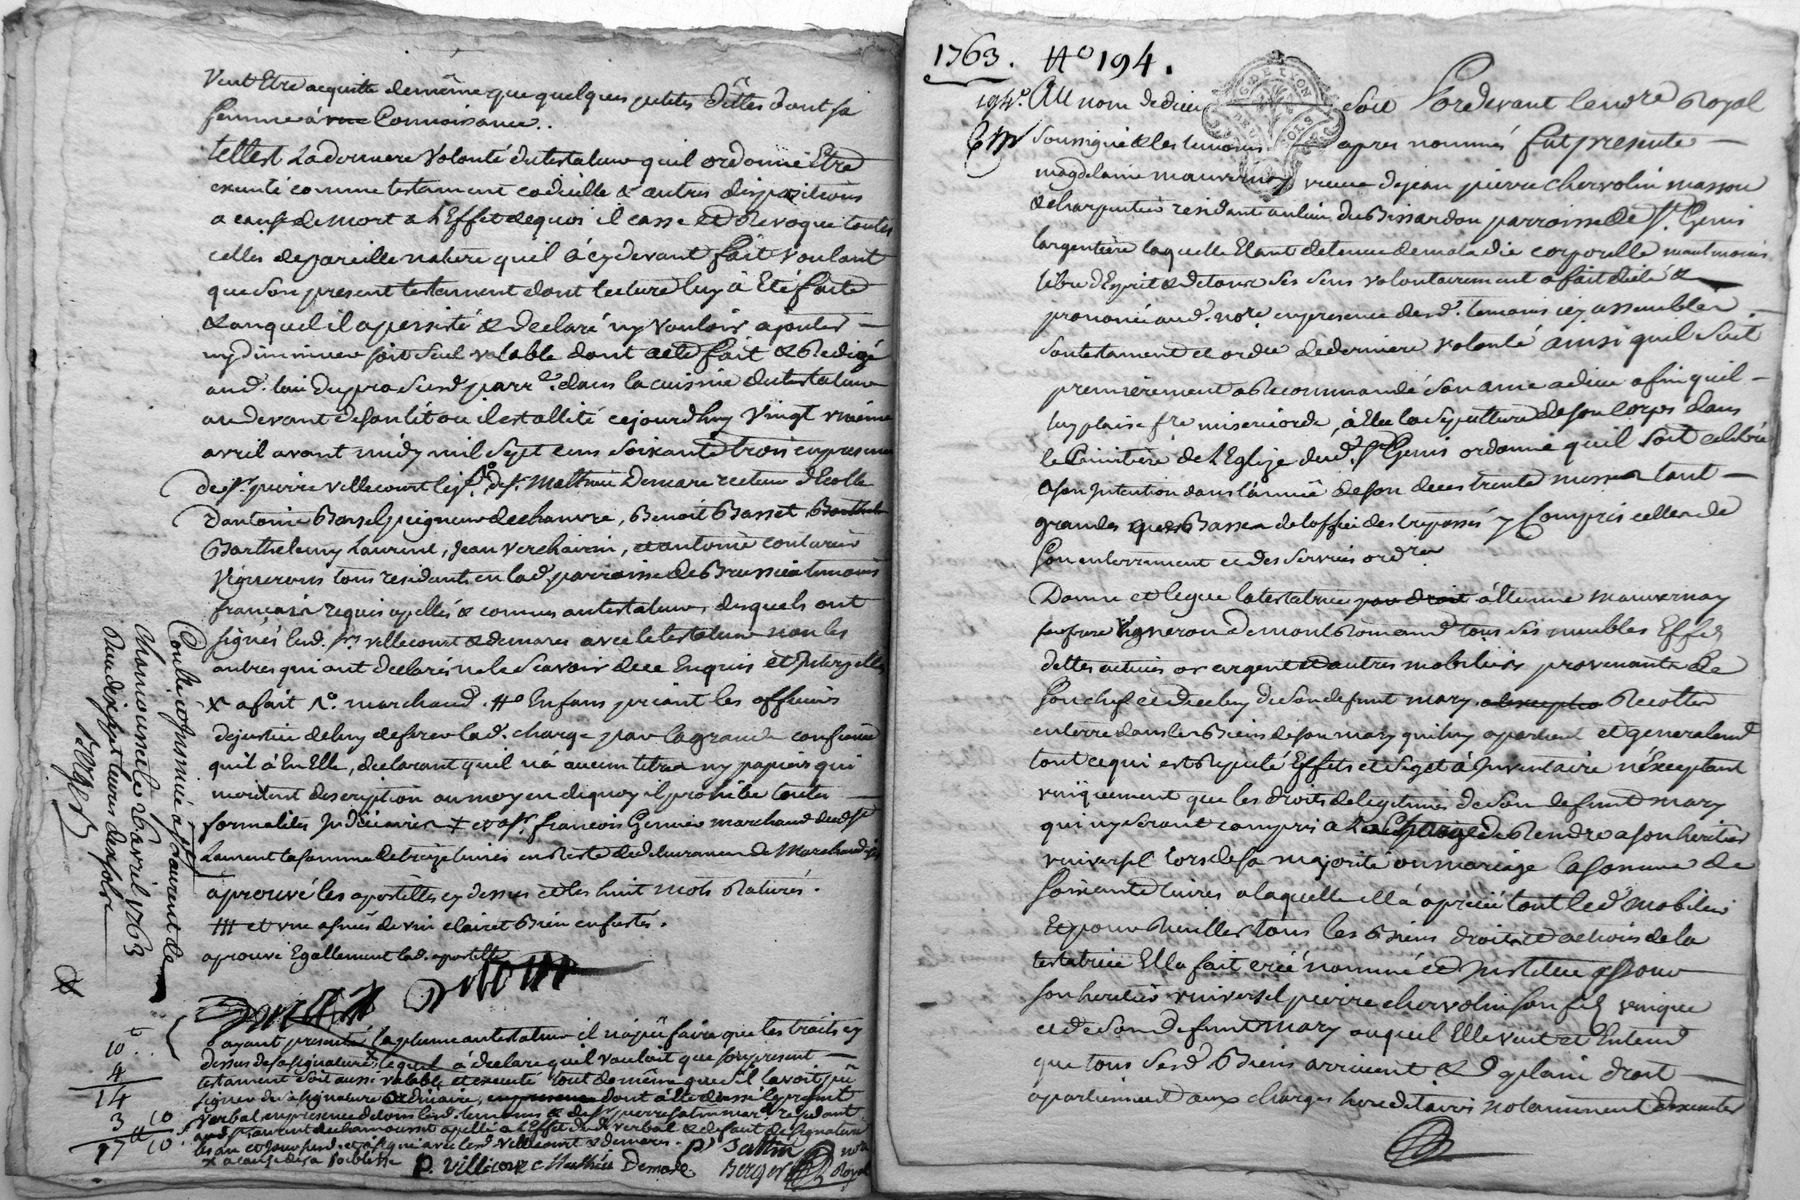 Veut Etre acquitté de même que quelques petites dettes dont sa
femme à vue Connoissance..
telle est La derniere Volonté du testateur quil ordonne Etre
executé comme testament codicille & autres dispositions
a cause de mort a l'Effet de quoi il casse et Revoque toutes
celles de pareille nature quil à cy devant fait Voulant
que son present testament dont lecture luy à Eté faite
& auquel il a persisté & declaré ny vouloir ajouter —
ny diminuer soit seul valable dont acte fait & Redigé
aud. lieu du parr.e dans la cuisine du testateur
au devant de son lit ou il est allité cejourdhuy Vingt
avril avant midy mil sept cens soixante trois en presence
de Sr. pierre Villecourt Sr. Mathieu Demare recteur d'Ecolle
d'antoine peigneur de chanvre, Benoit Basset
Barthelemy Laurent, Jean Verchairin, et antoine couturier
Vignerons tous residants en lad. parroisse de temoins
français requis apellés & connus au testateur, desquels ont
signés lesd. Srs. Villecourt & demares avec le testateur non les
autres qui ont declaré ne le scavoir de ce Enquis et Interpellés
X a fait marchand. Enfans priant les officiers
de justice de luy deferer lad. charge pour la grande confience
quil à En Elle, declarant quil n'à aucun titres ny papiers qui
meritent description au moyen de quoy il prohibe toutes
formalités Judiciaires + et a Sr. francois marchand dud St
Laurent la somme de treize livres en Reste de delivrance de Marchandises
aprouvé les apostilles cy dessus et les huit mots Raturés.
et une asnée de vin clairet Bien enfutés.
aprouvé Egallement lad. apostille
ayant presenté la plume au testateur il n'a pû faire que les traits cy
dessus de sa signature lequel à declaré quil vouloit que son present —
testament soit aussi valable et executé tout de même que sil l'avoit pû
signer de sa signature ordinaire, dont a été dressé le present
Verbal en presence de tous lesd. temoins & de Sr pierre mar.d residant
aud St Laurent de chamousset apellé à l'Effet dud verbal & defaut de signature
les an et jour susd. et à signé avec lesd. Villecourt & demare.
X a cause de sa foiblesse
P. Villecourt Mathieu Demare
Berger no.re Royal
Controllé & Insinué a St Laurent de
Chamousset le avril 1763
dix sept livres dix sols
Berger
10
4
14
3 10
17 10
1763. No 194.
194e. Au nom de dieu soit Pardevant le no.re Royal
soussigné & les temoins apres nommés fut presente —
magdelaine mauvernay veuve de jean pierre chervolin masson
& charpentier residant au lieu du Bissardon parroisse de St. Genis
largentiere laquelle Etant detenue de maladie corporelle neantmoins
libre d'Esprit & de tous ses sens volontairement a fait dicté &
prononcé aud. no.re en presence desd. temoins icy assemblés —
son testament et ordre de derniere volonté ainsi quil suit
premierement a Recommandé son ame a dieu afin quil —
luy plaise f.re misericorde, à Elu la sepulture de son corps dans
le Cimitière de l'Eglize dud. St Genis ordonne quil soit celebré
a son Intention dans l'année de son deces trente messes tant —
grandes que Basses de l'office des trepassés y Compris celles de
son enterrement et des services ord.res
Donne et legue la testatrice à Etienne mauvernay
son frere Vigneron de montRomand tous ses meubles Effets
dettes actives or argent et autres mobiliers provenants de
son chef et de celuy de son defunt mary Recoltes
en terre dans les Biens de son mary qui luy apartient et generalem.t
tout ce qui est Reputé Effets et sujet à Inventaire n'Exceptant
uniquement que les droits de legitimes de son defunt mary
qui ny seront compris a la charge de Rendre a son heritier
universel lors de sa majorité ou mariage la somme de
soixante livres a laquelle ella à aprecié tout led. mobilier
Et pour Recueillir tous les Biens droits et actions de la
testatrice Elle fait crée nomme et Institue
son heritier universel pierre chervolin son fils unique
et de son defunt mary auquel Elle veut et Entend
que tous sesd. Biens arrivent & de plain droit —
apartiennent aux charges hereditaires notamment d'executer